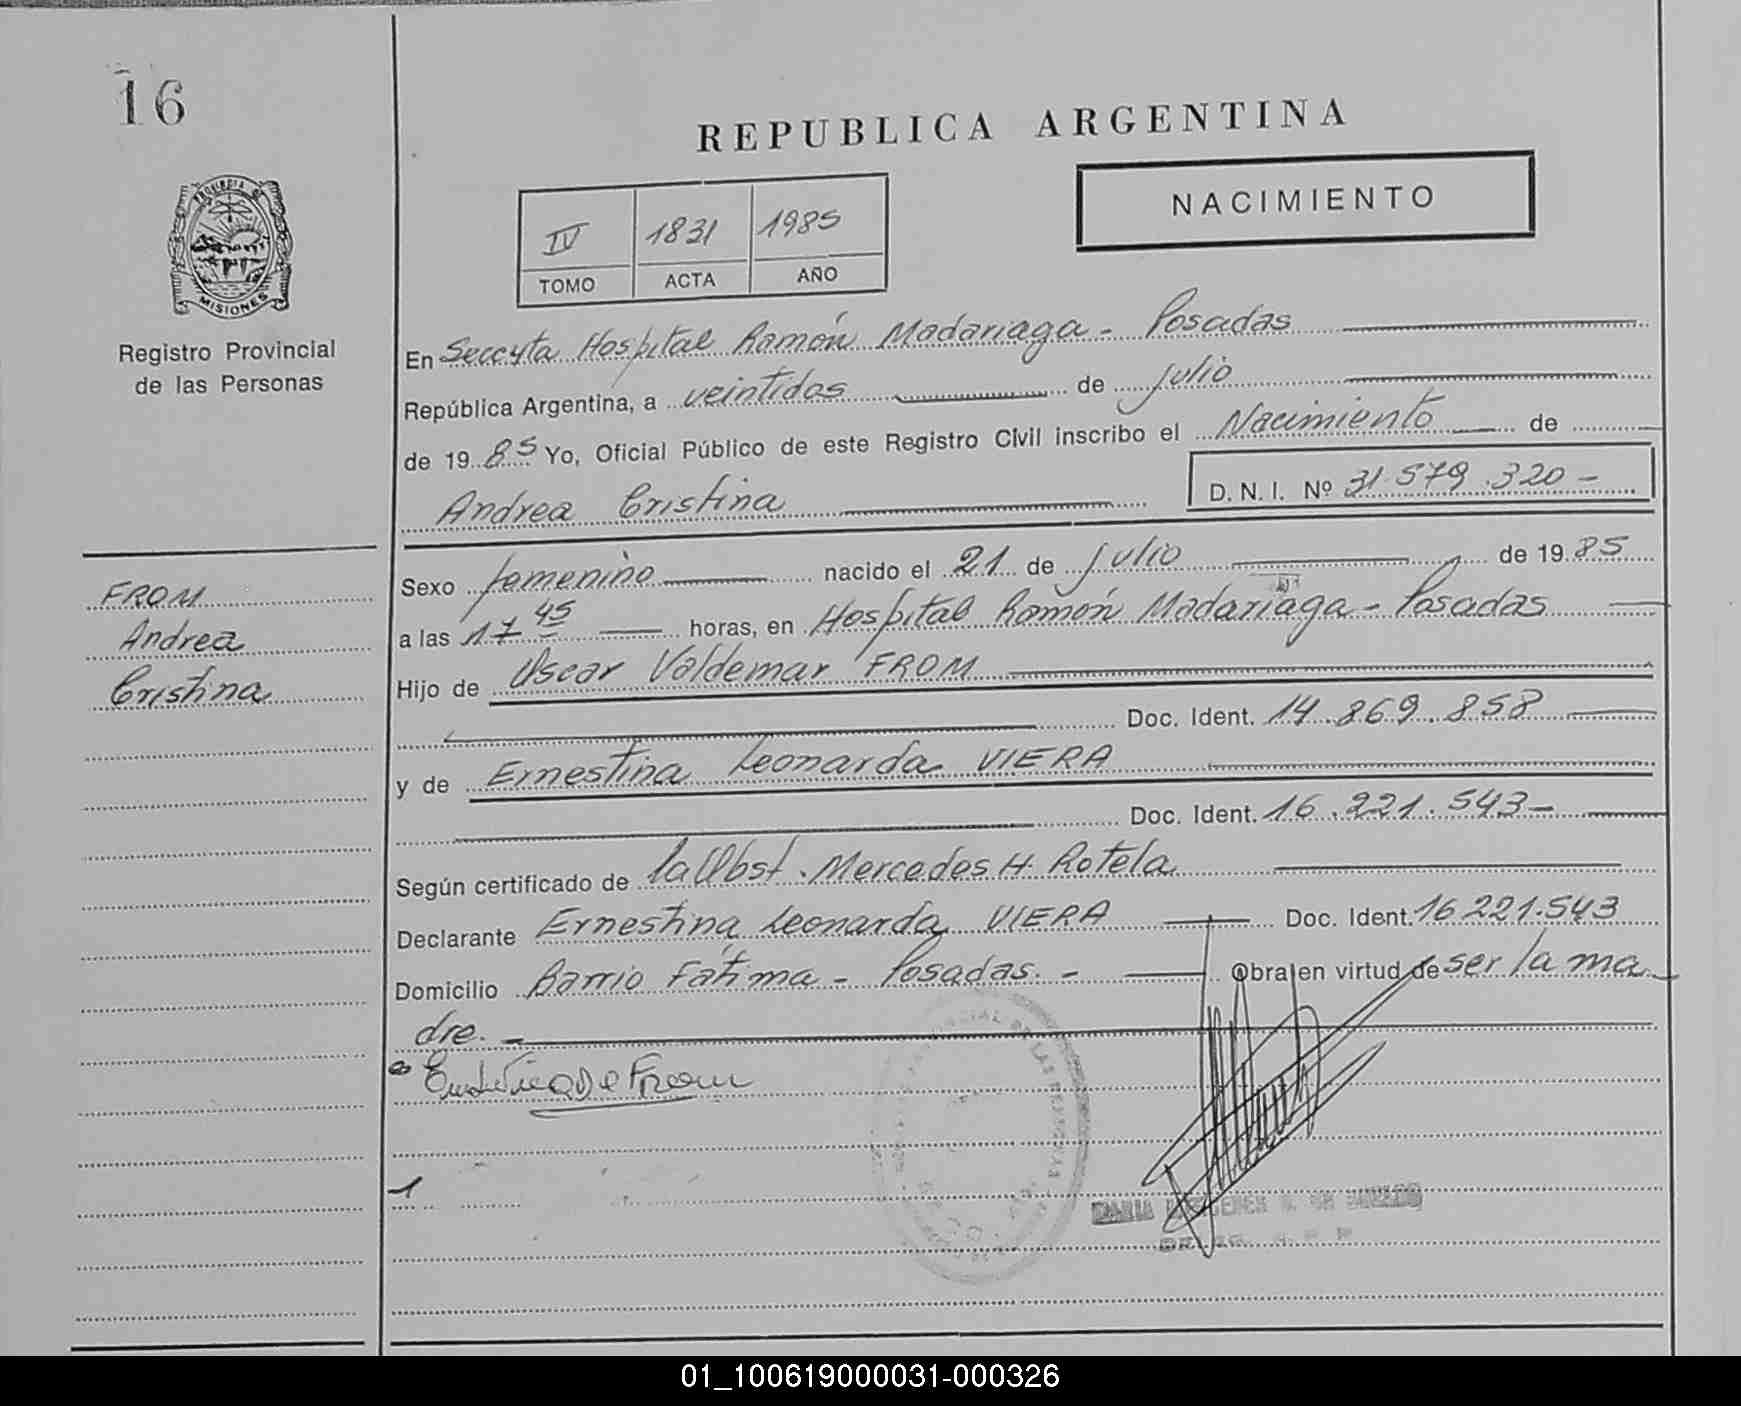 16
REPUBLICA ARGENTINA
NACIMIENTO
IV 1831 1985
TOMO ACTA AÑO
PROVINCIA DE
MISIONES
Registro Provincial
de las Personas
En Seccyta Hospital Ramón Madariaga - Posadas
República Argentina, a veintidos de julio
de 1985 Yo, Oficial Público de este Registro Civil inscribo el Nacimiento de
Andrea Cristina D. N. I. Nº 31.579.320-
Sexo femenino nacido el 21 de julio de 1985
a las 17 45 horas, en Hospital Ramón Madariaga - Posadas
Hijo de Oscar Valdemar FROM
Doc. Ident. 14.869.858
y de Ernestina Leonarda VIERA
Doc. Ident. 16.221.543-
Según certificado de la Obst. Mercedes H. Rotela
Declarante Ernestina Leonarda VIERA Doc. Ident. 16.221.543
Domicilio Barrio Fátima - Posadas. - Obra en virtud de ser la ma
dre. -
de From
FROM
Andrea
Cristina
01_100619000031-000326